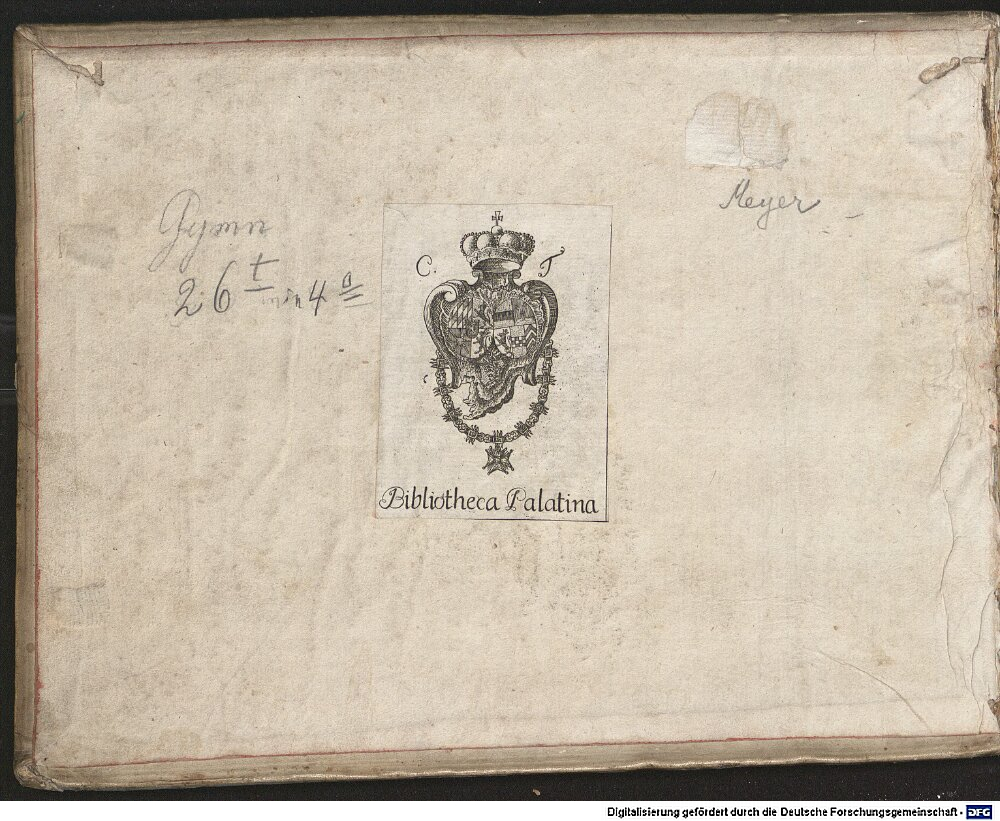 Gymn
26 t min 4 a
Meyer
C. T
Bibliotheca Palatina
Digitalisierung gefördert durch die Deutsche Forschungsgemeinschaft - DFG